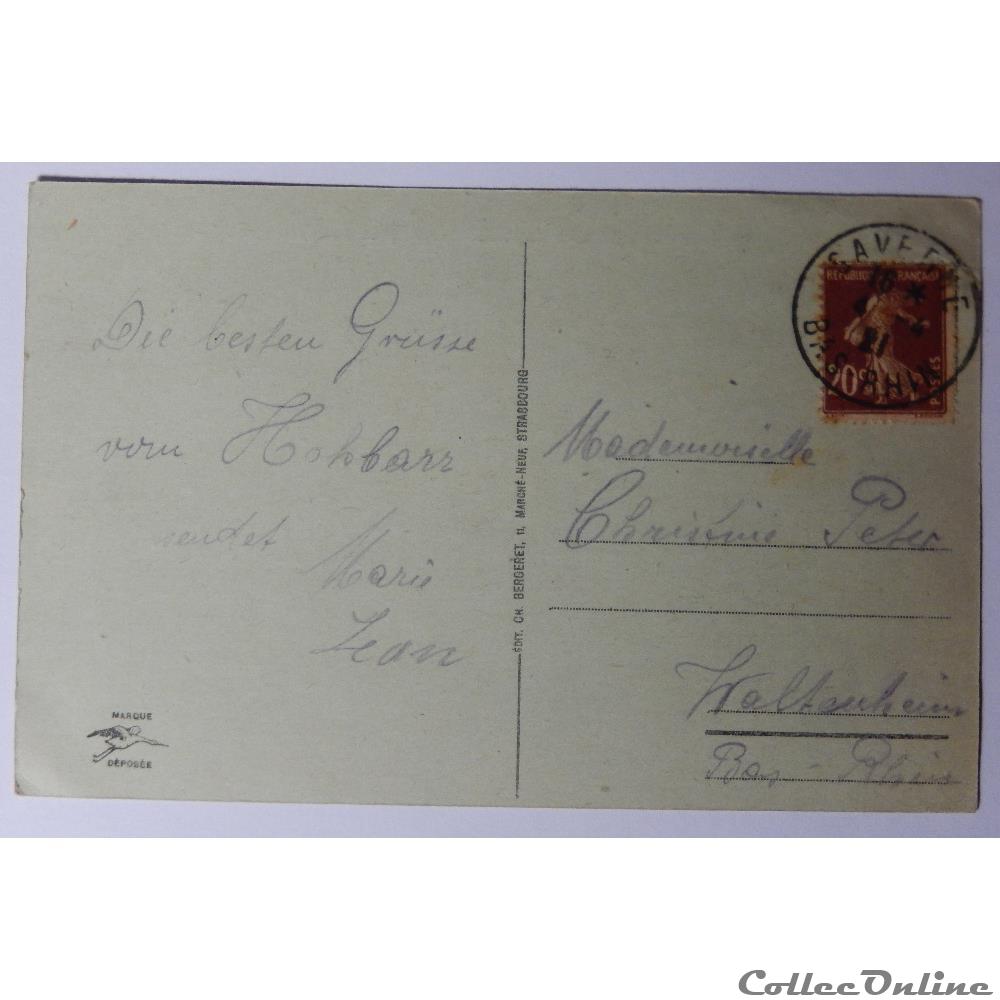 Die besten Grüsse
vom Hohbarr
sendet Marie
Jean
MARQUE
DÉPOSÉE
ÉDIT. CH. BERGERET, 11, MARCHÉ-NEUF, STRASBOURG
SAVERNE
BAS RHIN
RÉPUBLIQUE FRANÇAISE
20c POSTES
Mademoiselle
Christine Peter
Waltenheim
Bas-Rhin
CollecOnline